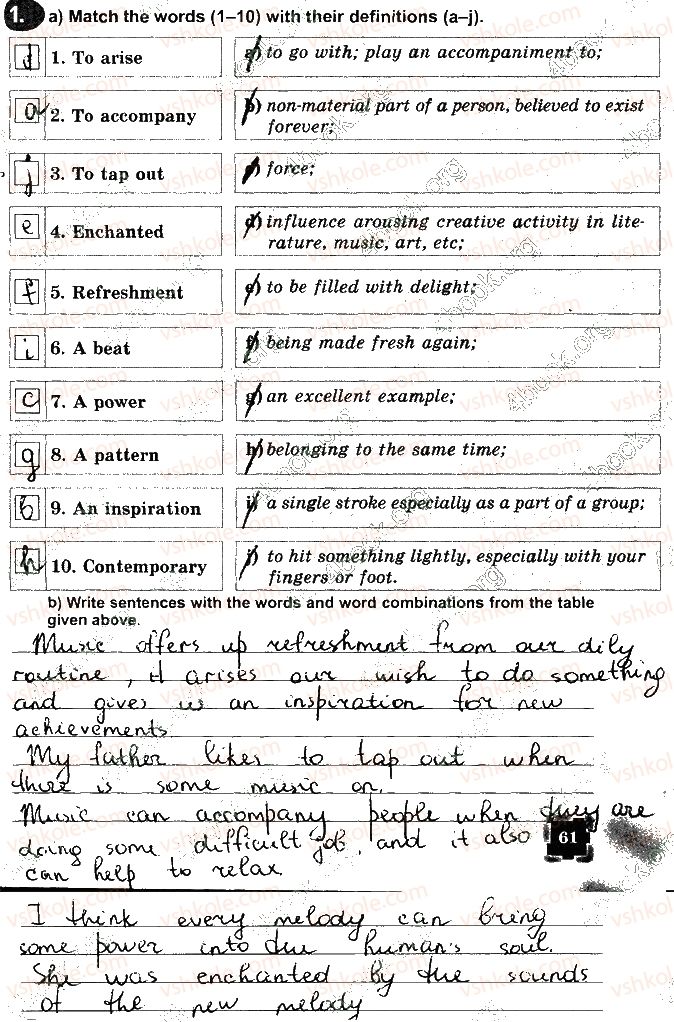 1. a) Match the words (1–10) with their definitions (a–j).
d 1. To arise
a) to go with; play an accompaniment to;
a 2. To accompany
b) non-material part of a person, believed to exist
forever;
j 3. To tap out
c) force;
e 4. Enchanted
d) influence arousing creative activity in lite-
rature, music, art, etc;
f 5. Refreshment
e) to be filled with delight;
i 6. A beat
f) being made fresh again;
c 7. A power
g) an excellent example;
g 8. A pattern
h) belonging to the same time;
b 9. An inspiration
i) a single stroke especially as a part of a group;
h 10. Contemporary
j) to hit something lightly, especially with your
fingers or foot.
b) Write sentences with the words and word combinations from the table
given above.
Music offers us refreshment from our dily
routine, it arises our wish to do something
and gives us an inspiration for new
achievements.
My father likes to tap out when
there is some music on.
Music can accompany people when they are
doing some difficult job, and it also
can help to relax
61
I think every melody can bring
some power into the human's soul.
She was enchanted by the sounds
of the new melody
vshkole.com
4book.org